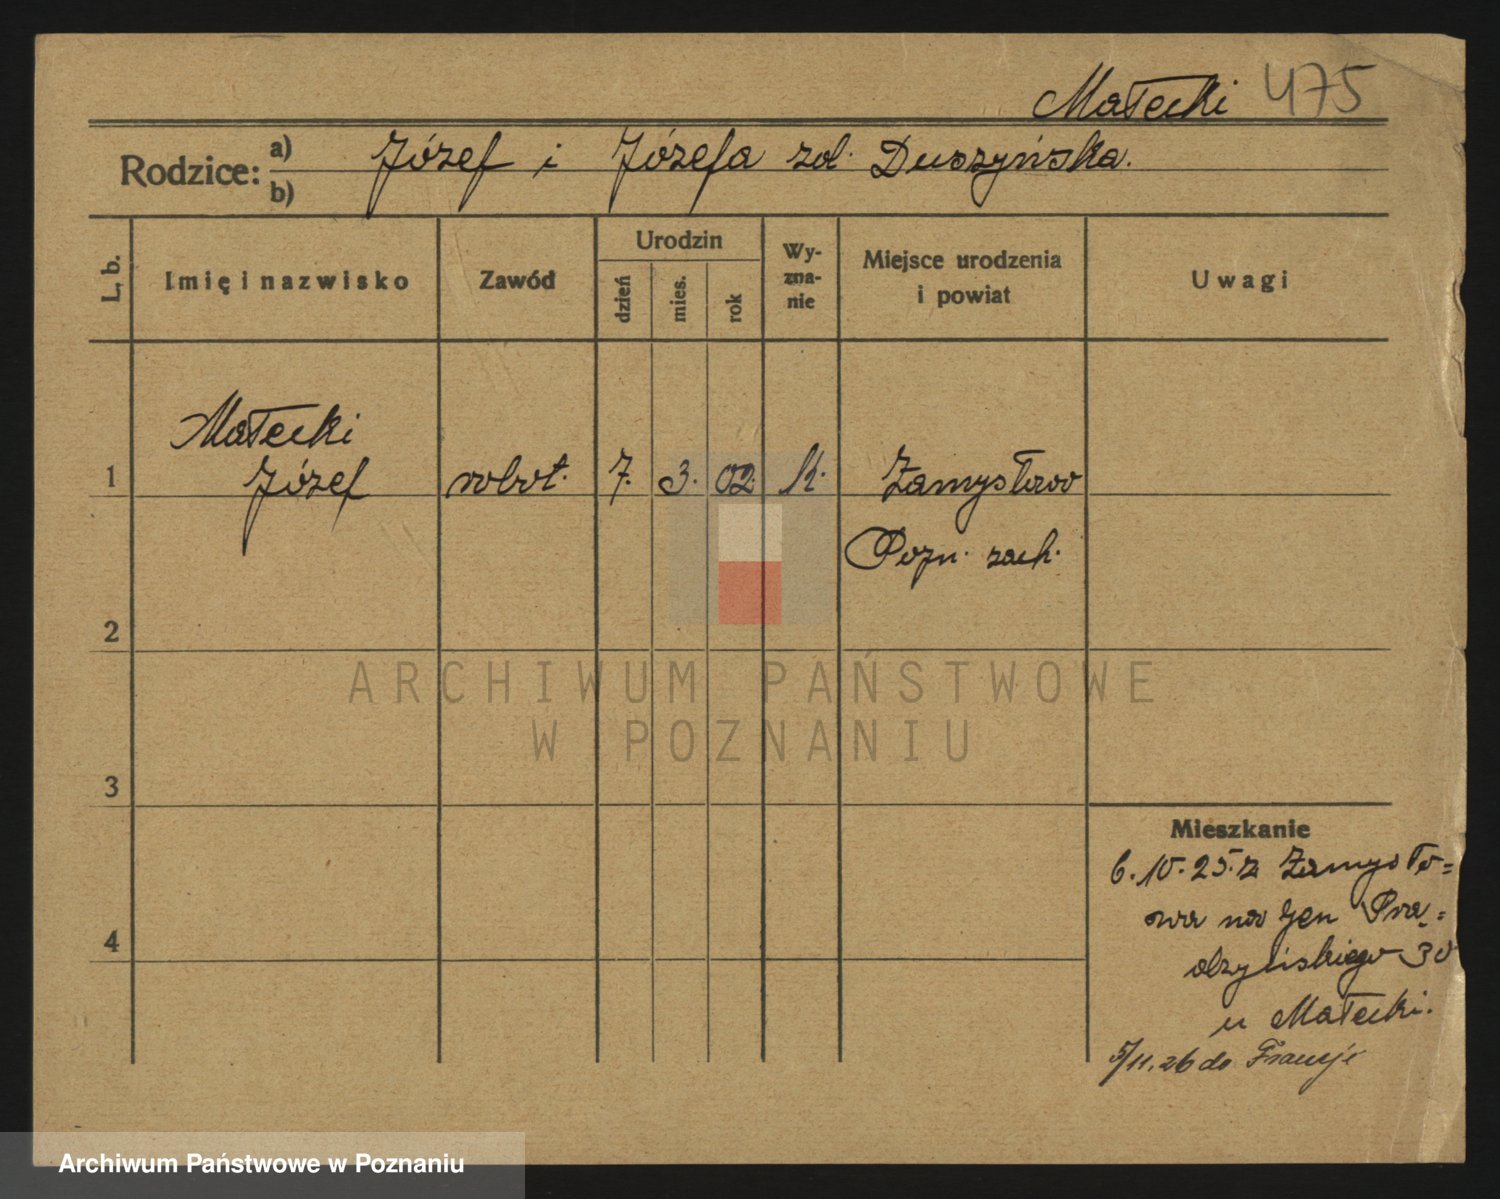 Małecki 475
Rodzice: a) b) Józef i Józefa zd. Duszyńska.
L. b.
Imię i nazwisko
Zawód
Urodzin
dzień
mies.
rok
Wy-
zna-
nie
Miejsce urodzenia
i powiat
Uwagi
Małecki
1 Józef robot. 7. 3. 02. k. Zamysłowo
Pozn. zach.
2
ARCHIWUM PAŃSTWOWE
W POZNANIU
3
Mieszkanie
6.10.25. z Zamysło=
wa na Gen Prą=
dzyńskiego 30
u Małecki.
5/11.26 do Francje
4
Archiwum Państwowe w Poznaniu